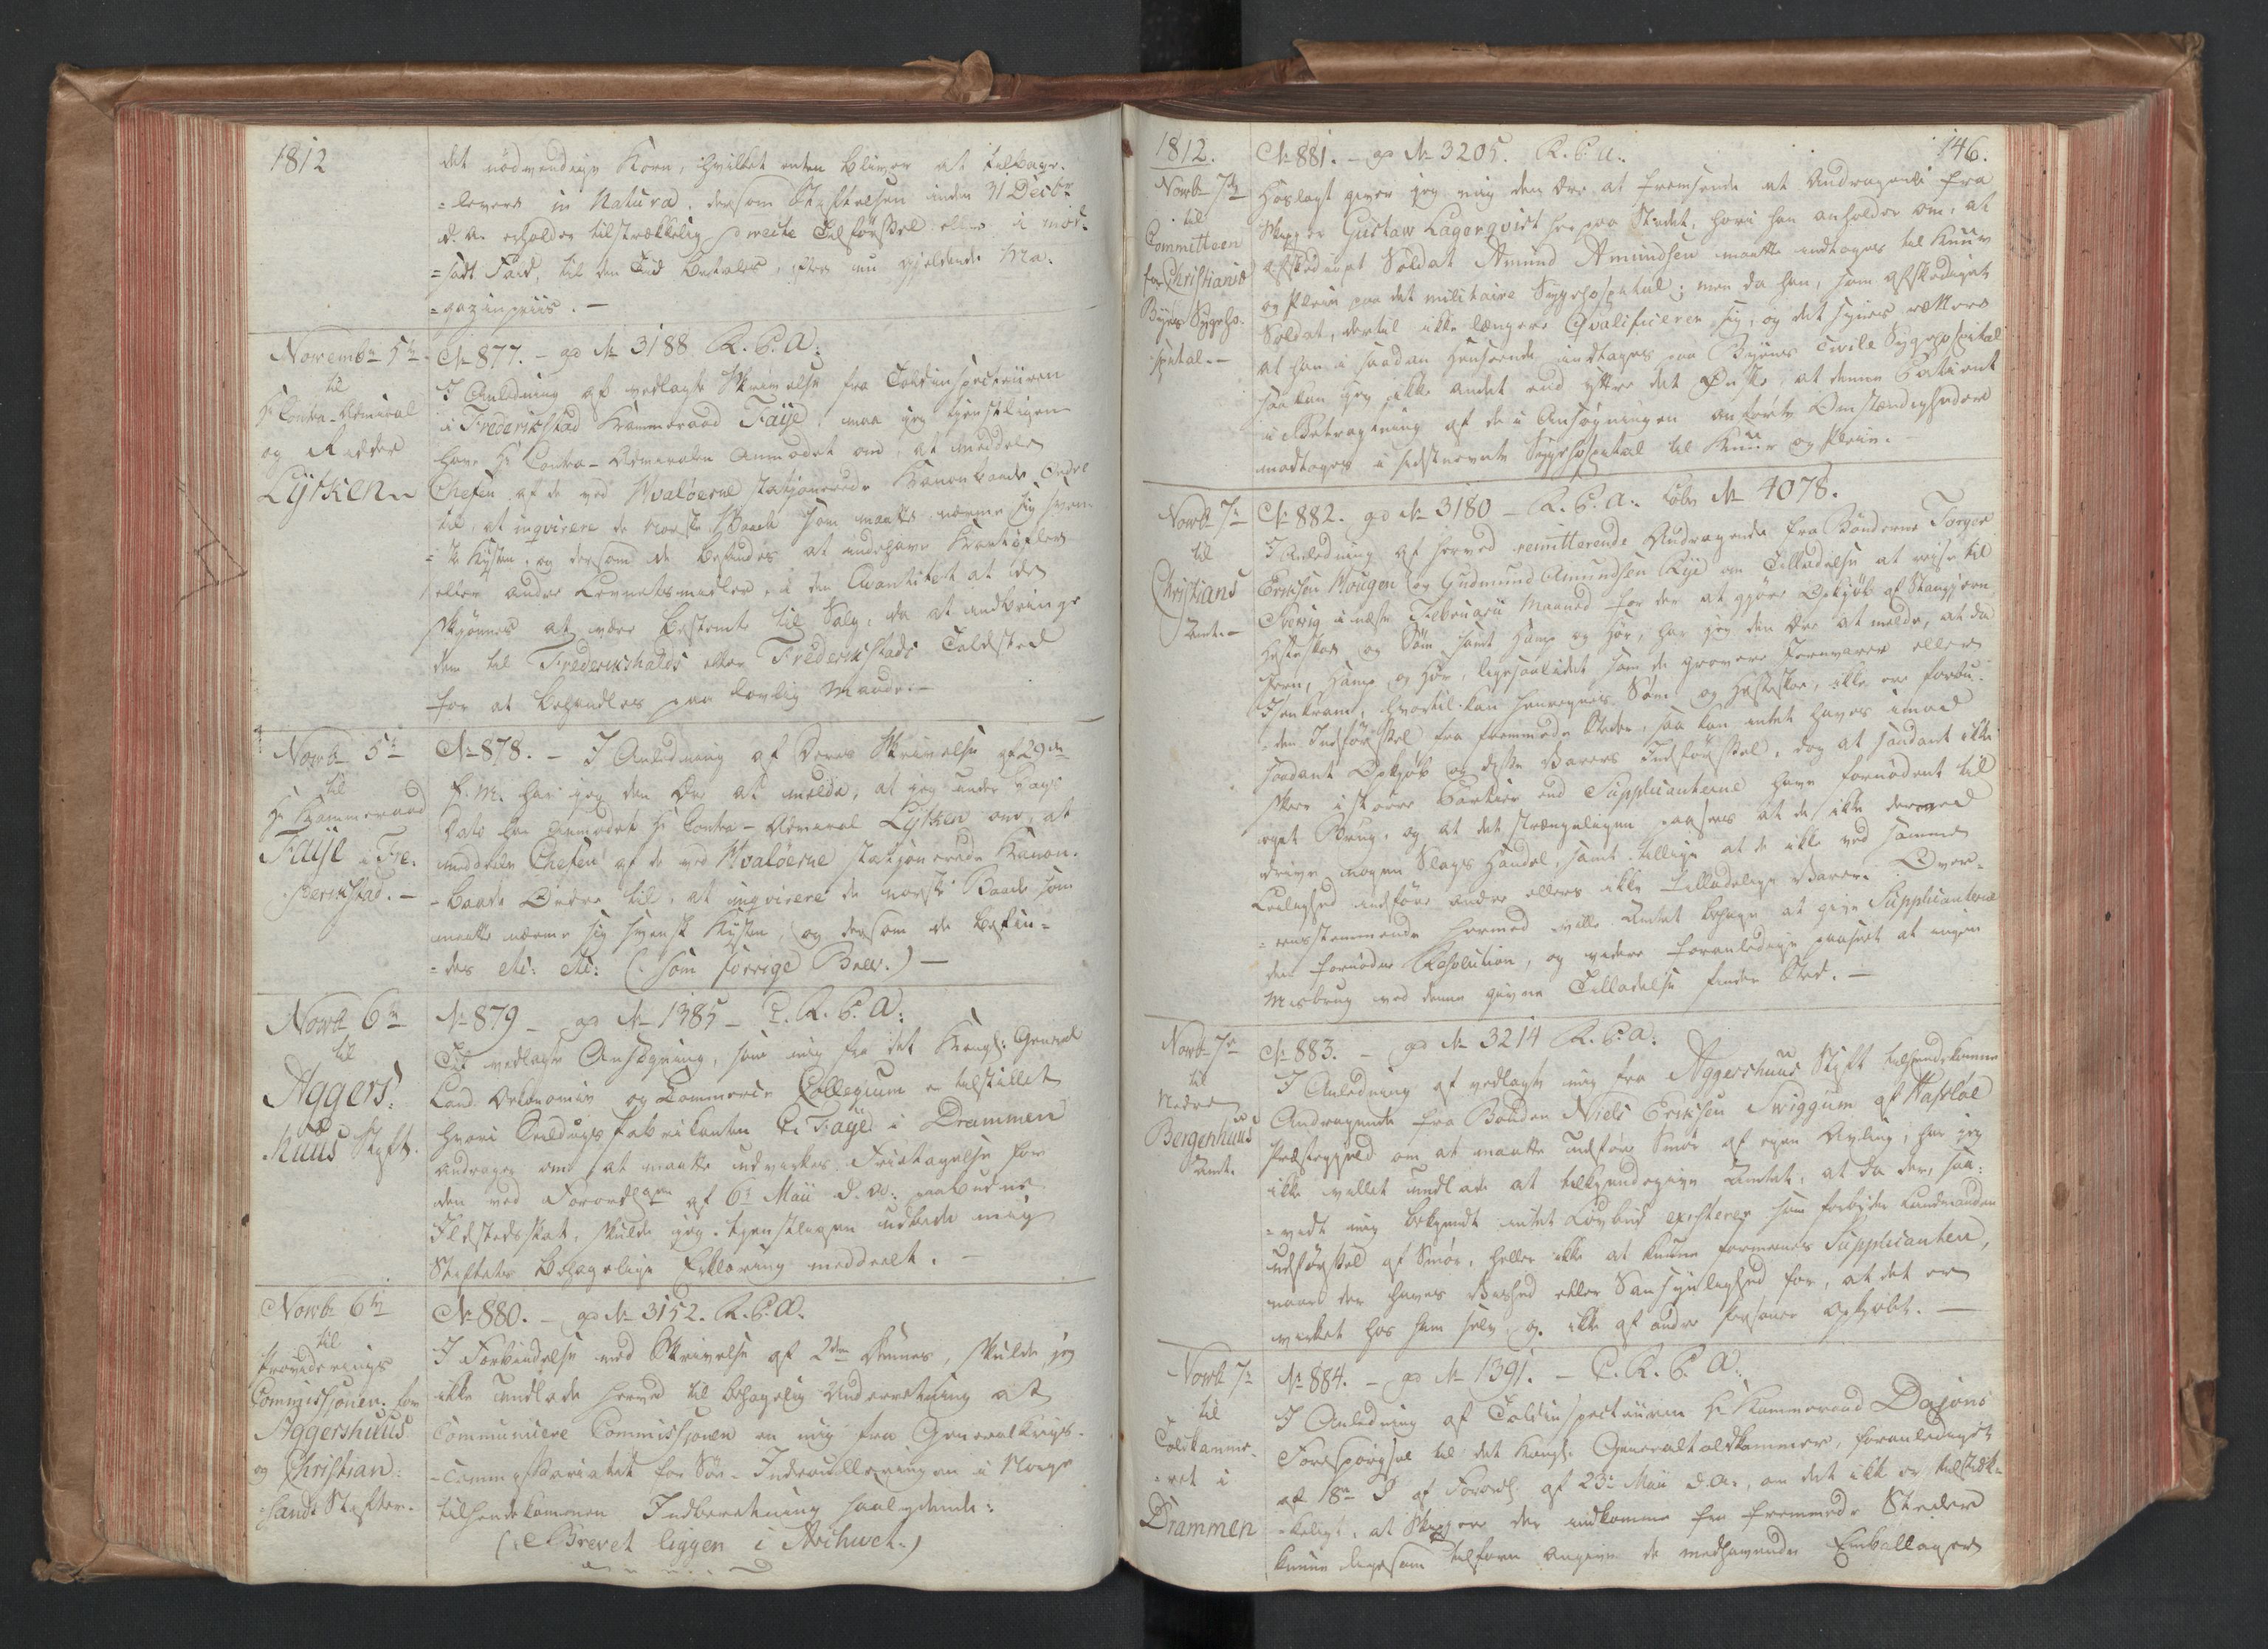 1812
det nødvendige Korn, hvilket enten bliver at tilbage-
=levere in Natura, dersom Stiftelsen inden 31 Decbr
d. A. erholder tilstrækkelig Tilførsel eller i mod-
=sadt Fald, til den Tid betales, efter nu gjeldende Ma-
=gazinpriis. —
Novembr 5te
til
Hr Contra-Admiral
og Ridder
Lütken
No 877. — ad No 3188 R. P. A:
I Anledning af vedlagte Skrivelse fra Toldinspecteuren
i Frederikstad Kammerraad Faÿe, maa jeg tjenstligen
have Hr Contra-Admiralen anmodet om, at meddele
Chefen af de ved Hvaløerne stasjonerede Kanonbaade Ordre
til, at inqvirere de norske Baade som maatte nærme sig sven-
=ske Kysten, og dersom de befindes at indehave Kartofler
eller andre Levnetsmidler, i den Qvantitet at de
skjønnes at være bestemte til Salg, da at indbringe
dem til Frederikshalds eller Frederikstads Toldsted
for at behandles paa lovlig Maade. —
Novbr 5te
til
Hr Kammerraad
Faÿe i Fre-
derikstad. —
No 878. — I Anledning af Deres Skrivelse af 29de
f. M. har jeg den Ære at melde, at jeg under Dags
Dato har anmodet Hr Contra-Admiral Lütken om, at
meddele Chefen af de ved Hvaløerne stasjonerede Kanon-
-baade Ordre til, at inqvirere de norske Baade som
maatte nærme sig svenske Kysten, og dersom de befin-
=des etc: etc: (: som forrige Brev.) —
Novbr 6te
til
Aggers-
huus Stift.
No 879 — ad No 1385 — T. R. P. A:
Det vedlagte Ansøgning, som mig fra det Kongl: General
Land Oekonomie og Commerce Collegium er tilstillet
hvori Seildugsfabrikanten C. Faÿe i Drammen
andrager om at maatte udvirkes Fritagelse for
den ved Forordgen af 6te Maii d. A. paabudne
Ildstedsskat, skulde jeg tjenstligen udbede mig
Stiftets behagelige Erklæring meddeelt. —
Novbr 6te
til
Provideerings
Commissjonen for
Aggershuus
og Christian-
sands Stifter.
No 880. — ad No 3152. R. P. A.
I Forbindelse med Skrivelse af 2den dennes, skulde jeg
ikke undlade herved til behagelig Underretning at
communicere Commissjonen en mig fra Generalkrigs-
-Commissariatet for Søe-Indroulleringen i Norge
tilhændekommen Indberetning saalydende:
(: Brevet ligger i Archivet:)
1812.
146.
Novbr 7de
til
Committeen
for Christiania
Byes Sygeho-
spital. —
No 881. — ad No 3205. R. P. A:
Hoslagt giver jeg mig den Ære at fremsende et Andragende fra
Skipper Gustaw Lagerqvist her paa Stedet, hvori han anholder om, at
afskediget Soldat Amund Amundsen maatte indtages til Kuur
og Pleie paa det militaire Sygehospital; men da han, som afskediget
Soldat, dertil ikke længere qvalificerer sig, og det synes rettere
at han i saadan Henseende indtages paa Byens Civile Sygehospital
saa kan jeg ikke andet end yttre det Ønske, at denne Patient
i Betragtning af de i Ansøgningen anførte Omstændigheder
modtages i sidstnævnte Sygehospital til Kuur og Pleie. —
Novbr 7de
til
Christians
Amt. —
No 882. ad No 3180 — R. P. A: Løbe No 4078.
I Anledning af herved remitterende Andragende fra Bønderne Torger
Eriksen Hougen og Gudmund Amundsen Rÿe om Tilladelse at reise til
Sverig i næste Februarii Maaned for der at gjøre Opkjøb af Stangjern
Hesteskoe og Søm samt Hamp og Hør, har jeg den Ære at melde, at da
Jern, Hamp og Hør, ligesaalidet som de grovere Jernvarer eller
Isenkram, hvortil kan henregnes Søm og Hesteskoe, ikke ere forbu-
=den Indførsel fra fremmede Steder, saa kan intet haves imod
saadant Opkjøb og disse Varers Indførsel, dog at saadant ikke
skeer i større Partier end Supplicanterne have fornødent til
eget Brug, og at det strængeligen paasees at de ikke dermed
drive nogen Slags Handel, samt tillige at de ikke ved samme
Leilighed indføre andre ellers ikke tilladelige Varer. Over-
=eensstemmende hermed ville Amtet behage at give Supplicanterne
den fornødne Resolution, og videre foranledige paaseet at ingen
Misbrug ved denne givne Tilladelse finder Sted. —
Novbr 7de
til
Nordre
Bergenhuus
Amt.
No 883. — ad No 3214 R. P. A:
I Anledning af vedlagte mig fra Aggershuus Stift tilhændekomne
Andragende fra Bonden Niels Eriksen Swiggum af Hafsloe
Præstegjeld om at maatte udføre Smør af egen Avling, har jeg
ikke villet undlade at tilkjendegive Amtet, at da der, saa-
=vidt mig bekjendt intet Lovbud existerer som forbyder Landmanden
udførsel af Smør, heller ikke at kunne formenes Supplicanten,
naar der haves Vished eller Sandsynlighed for, at det er
virket hos ham selv og ikke af andre Personer opkjøbt. —
Novbr 7de
til
Toldkamme-
-ret i
Drammen
No 884. — ad No 1391. — T. R. P. A:
I Anledning af Toldinspecteuren Hr Kammerraad Dajons
Forespørgsel til det Kongl: Generaltoldkammer, foranlediget
af 18de § af Forordg af 23de Maii d. A., om det ikke er tilstræk-
=keligt, at Skippere der indkomme fra fremmede Steder
kunne ligesom tilforn angive de medhavende Emballager